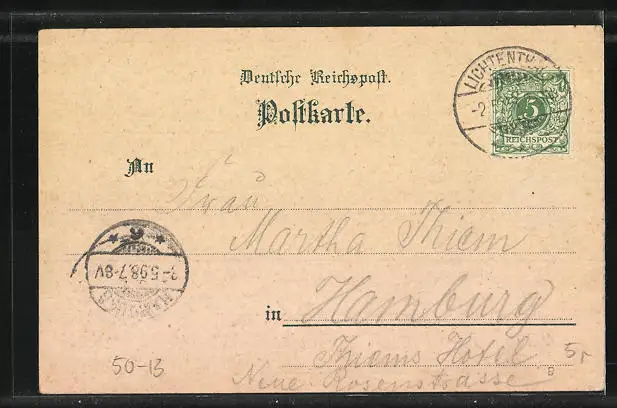 LICHTENTH
-2
5
REICHSPOST
Deutsche Reichspost.
Postkarte.
An
Frau
Martha Thiem
in Hamburg
Thiems Hotel
Neue Rosenstrasse
5.98.7-8V
50-13
5,-
B